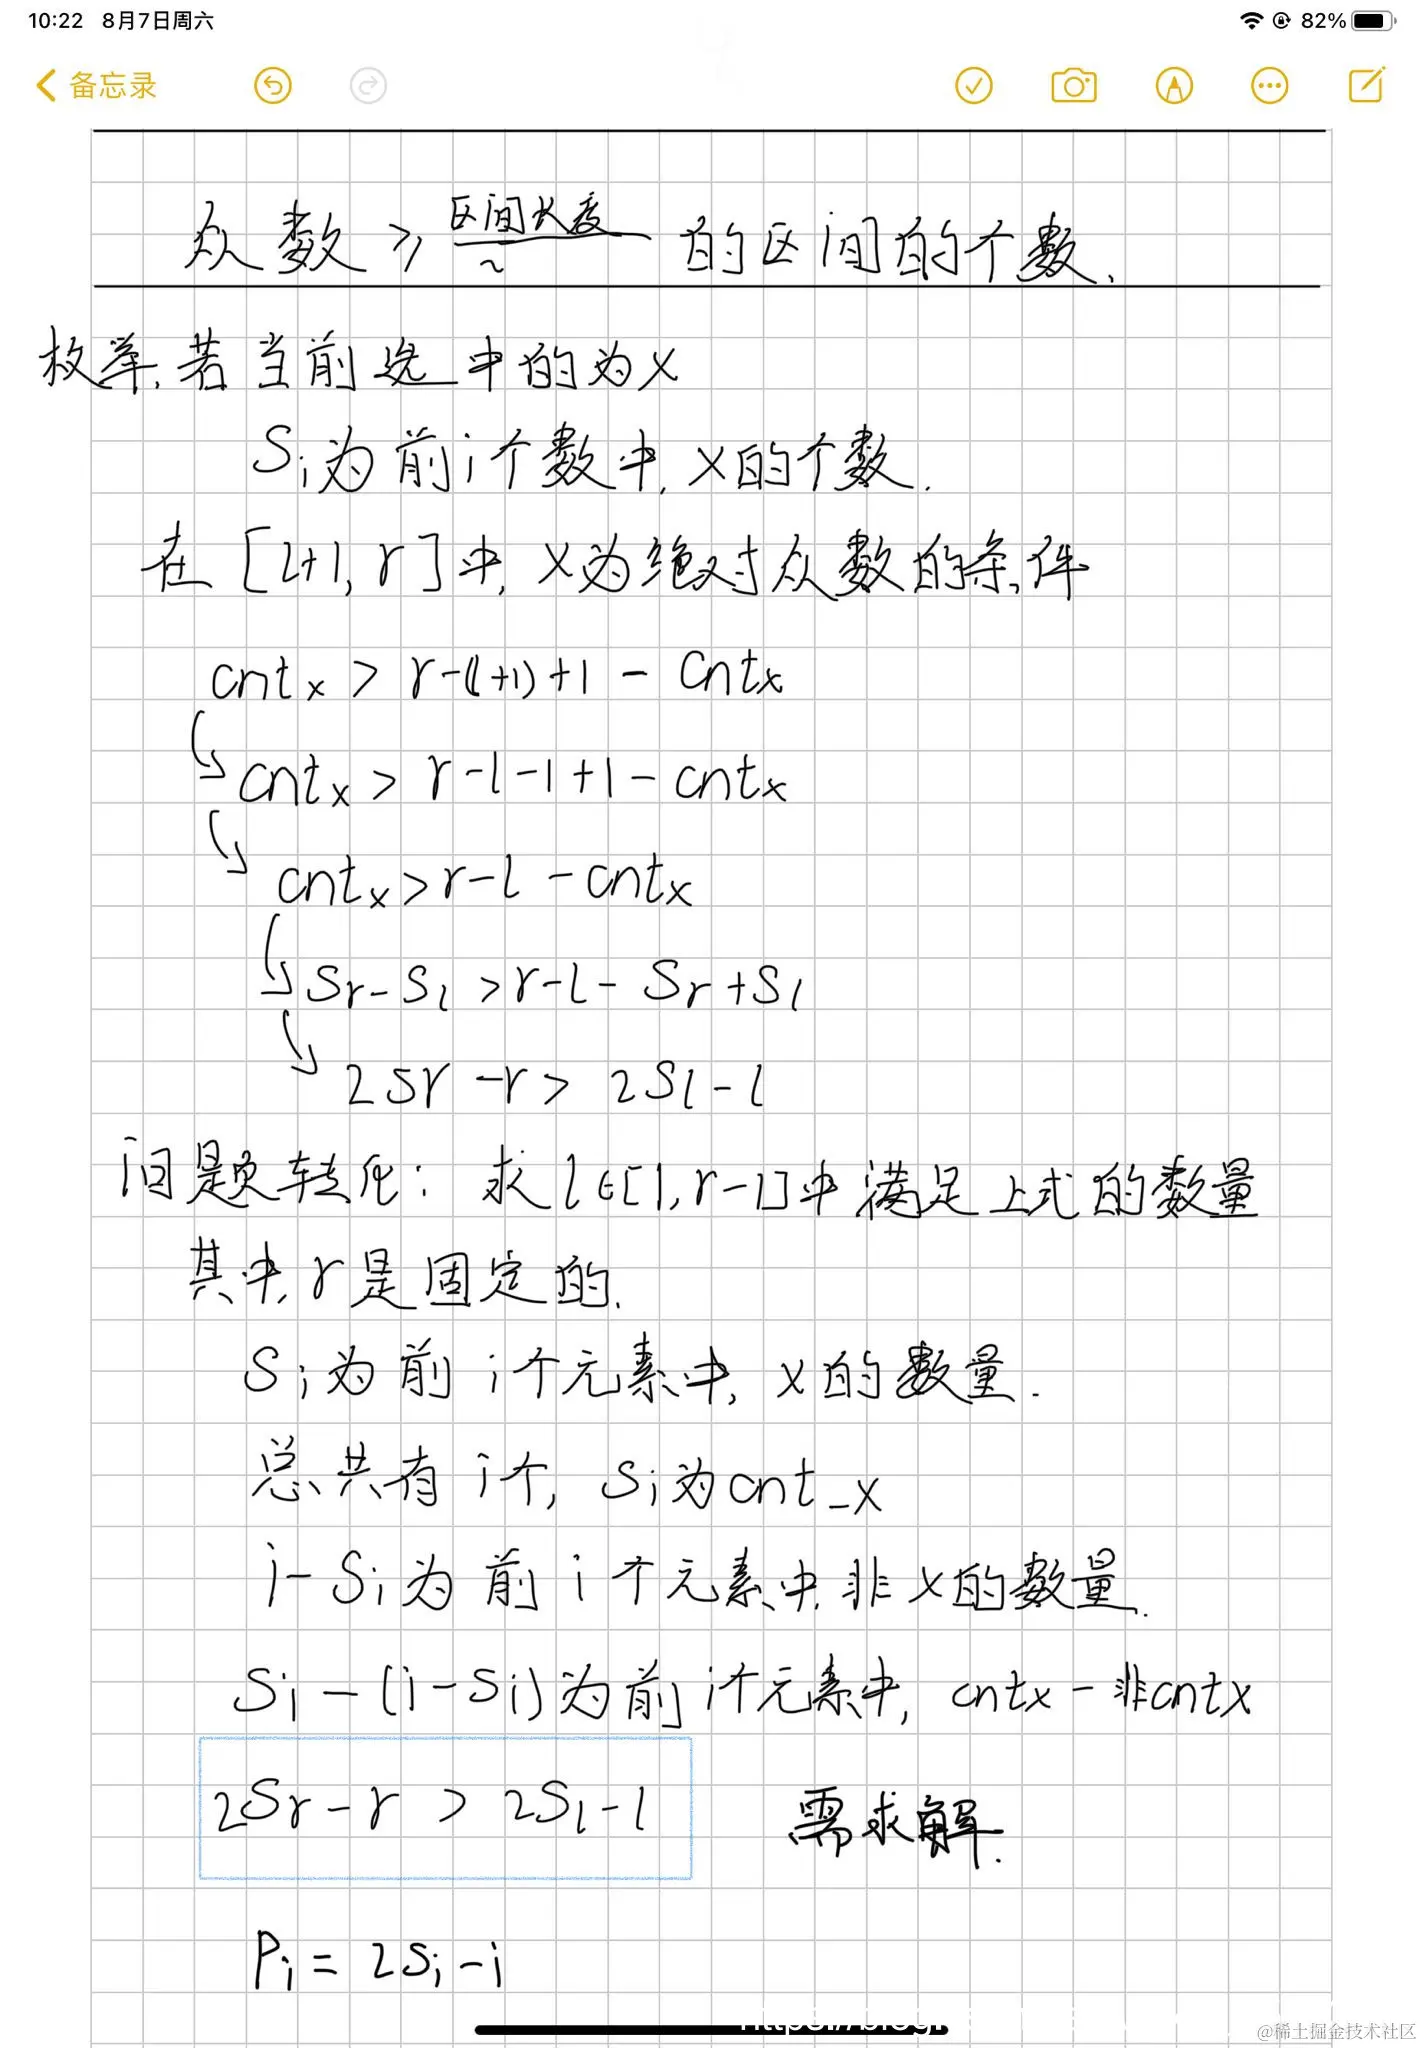 10:22 8月7日周六 82%
备忘录
众数 ≥ 区间长度/2 的区间的个数.
枚举,若当前选中的为x
Si为前i个数中,x的个数.
在[l+1,r]中,x为绝对众数的条件
cntx > r-(l+1)+1 - cntx
cntx > r-l-1+1-cntx
cntx > r-l-cntx
Sr-Sl > r-l-Sr+Sl
2Sr-r > 2Sl-l
问题转化: 求l∈[1,r-1]中满足上式的数量
其中,r是固定的.
Si为前i个元素中,x的数量.
总共有i个, Si为cnt_x
i-Si为前i个元素中,非x的数量.
Si-(i-Si)为前i个元素中, cntx-非cntx
2Sr-r > 2Sl-l 需求解.
Pi=2Si-i
@稀土掘金技术社区